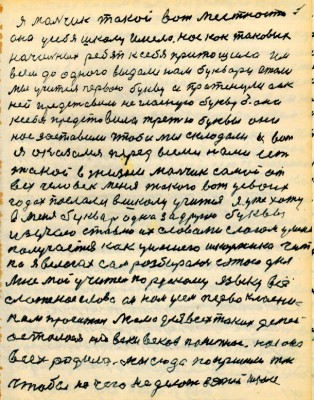 я мальчик такой вот местности
она у себя школу имела, нас как таковых
начальных ребят к себе притощила и
всем до одного выдали нам буквари стали
мы учится первою букву а протянули а к
ней представили не гласную букву б. она
к себе представила третью букву они
нас заставили чтобы мы складали и вот
Я оказался перед всеми нами есть
такой в жизни мальчик самой от
всех человек меня такого вот девоих
годах послали в школу учится я уже хожу
у меня буквар одна за другою буквы
изучаю ставлю их словами слогом у меня
получается как у умного школьника чита
по я в слогах сам розбираюсь с того дня
мне мой учитель по рускому языку всё
сложное слова он нам учит перво классни-
кам прочитал мало для всех таких детей
осталось
всех родила. мы сюда пришли так
чтобы ничего не делать в этой школе